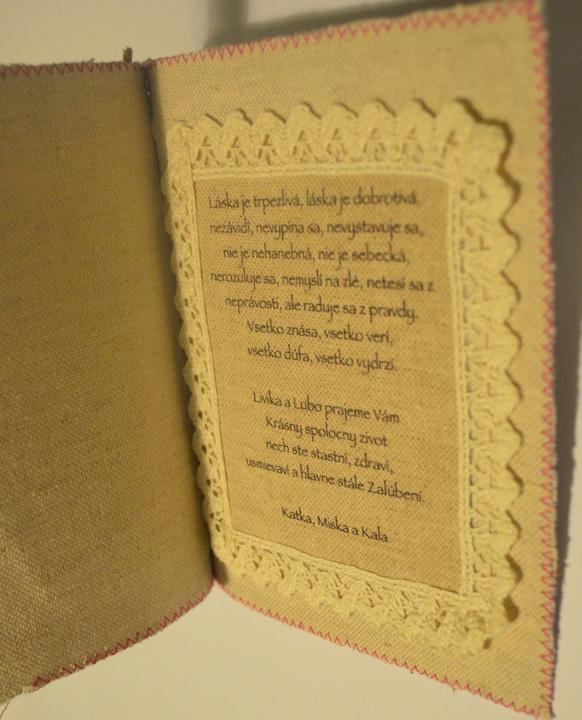 Láska je trpezlivá, láska je dobrotivá.
nezávidí, nevypína sa, nevystavuje sa,
nie je nehanebná, nie je sebecká,
nerozuluje sa, nemyslí na zlé, netesí sa z
neprávosti, ale raduje sa z pravdy.
Vsetko znása, vsetko verí,
vsetko dúfa, vsetko vydrzí.
Livika a Lubo prajeme Vám
Krásny spolocny zivot
nech ste stastní, zdraví,
usmievaví a hlavne stále Zalúbení.
Katka, Miska a Kala